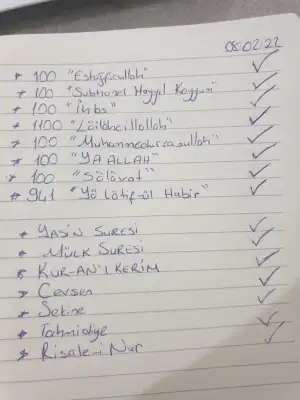 08.02.22
* 100 "Estağfirullah"
* 100 "Subhanel Hayyil Kayyum"
* 100 "İhlas"
* 1100 "Lâilâheillallah"
* 100 "Muhammedurrasulullah"
* 100 "YA ALLAH"
* 100 "Sâlâvat"
* 941 "Yâ Lâtif-ül Habir"
* YASİN SURESİ
* MÜLK SURESİ
* KUR-AN'I KERİM
* Cevşen
* Sekine
* Tahmidiye
* Risale-i Nur